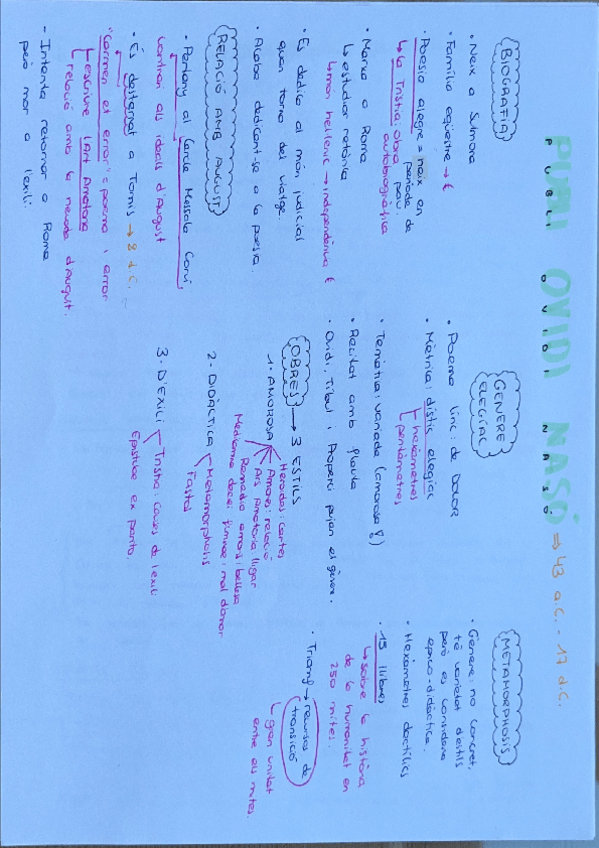 PUBLI OVIDI NASÓ ⇒ 43 a.C. - 17 d.C.
PUBLI OVIDI NASÓ
BIOGRAFIA
· Neix a Sulmona
· Família eqüestre → €
· Poesia alegre = neix en
període de
pau.
↳ la Tristia: obra
autobiogràfica
· Marxa a Roma
↳ estudiar retòrica
↳ món hel·lènic → independència €
· Es dedica al món judicial
quan torna del viatge.
· Acaba dedicant-se a la poesia.
RELACIÓ AMB AUGUST
· Pertany al Cercle Messala Corví,
contrari als ideals d'August
· És desterrat a Tomis → 8 d.C.
"Carmen et error" = poema i error
↳ escriure l'Art Amatoria
↳ relació amb la neboda d'August.
- Intenta retornar a Roma
però mor a l'exili.
GÈNERE
ELEGÍAC
· Poema líric: de DOLOR
· Mètrica: dístic elegíac
↳ hexàmetres
↳ pentàmetres
· Temàtica: variada (amorosa)
· Recitat amb flauta
· Ovidi, Tibul i Properci pujen el gènere.
OBRES → 3 ESTILS
1. AMOROSA
Heroidas: cartes
Amores: relació
Ars Amatoria: lligar
Remedia amoris: bellesa
Medicamina faciei: mal d'amor
2. DIDÀCTICA
Metamorphosis
Fasti
3. D'EXILI
Tristia: coses de l'exili
Epistulae ex ponto.
METAMORPHOSIS
· Gènere: no concret,
té varietat d'estils
però es considera
èpico-didàctica.
· Hexàmetres dactílics
· 15 llibres
↳ sobre la història
de la humanitat en
250 mites.
· Triomf → recursos de
transició
↳ gran unitat
entre els mites.